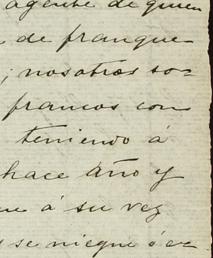 agente de quien
de franque
; nosotros so-
francos con
teniendo á
hace año y
á su vez
se niegue ó